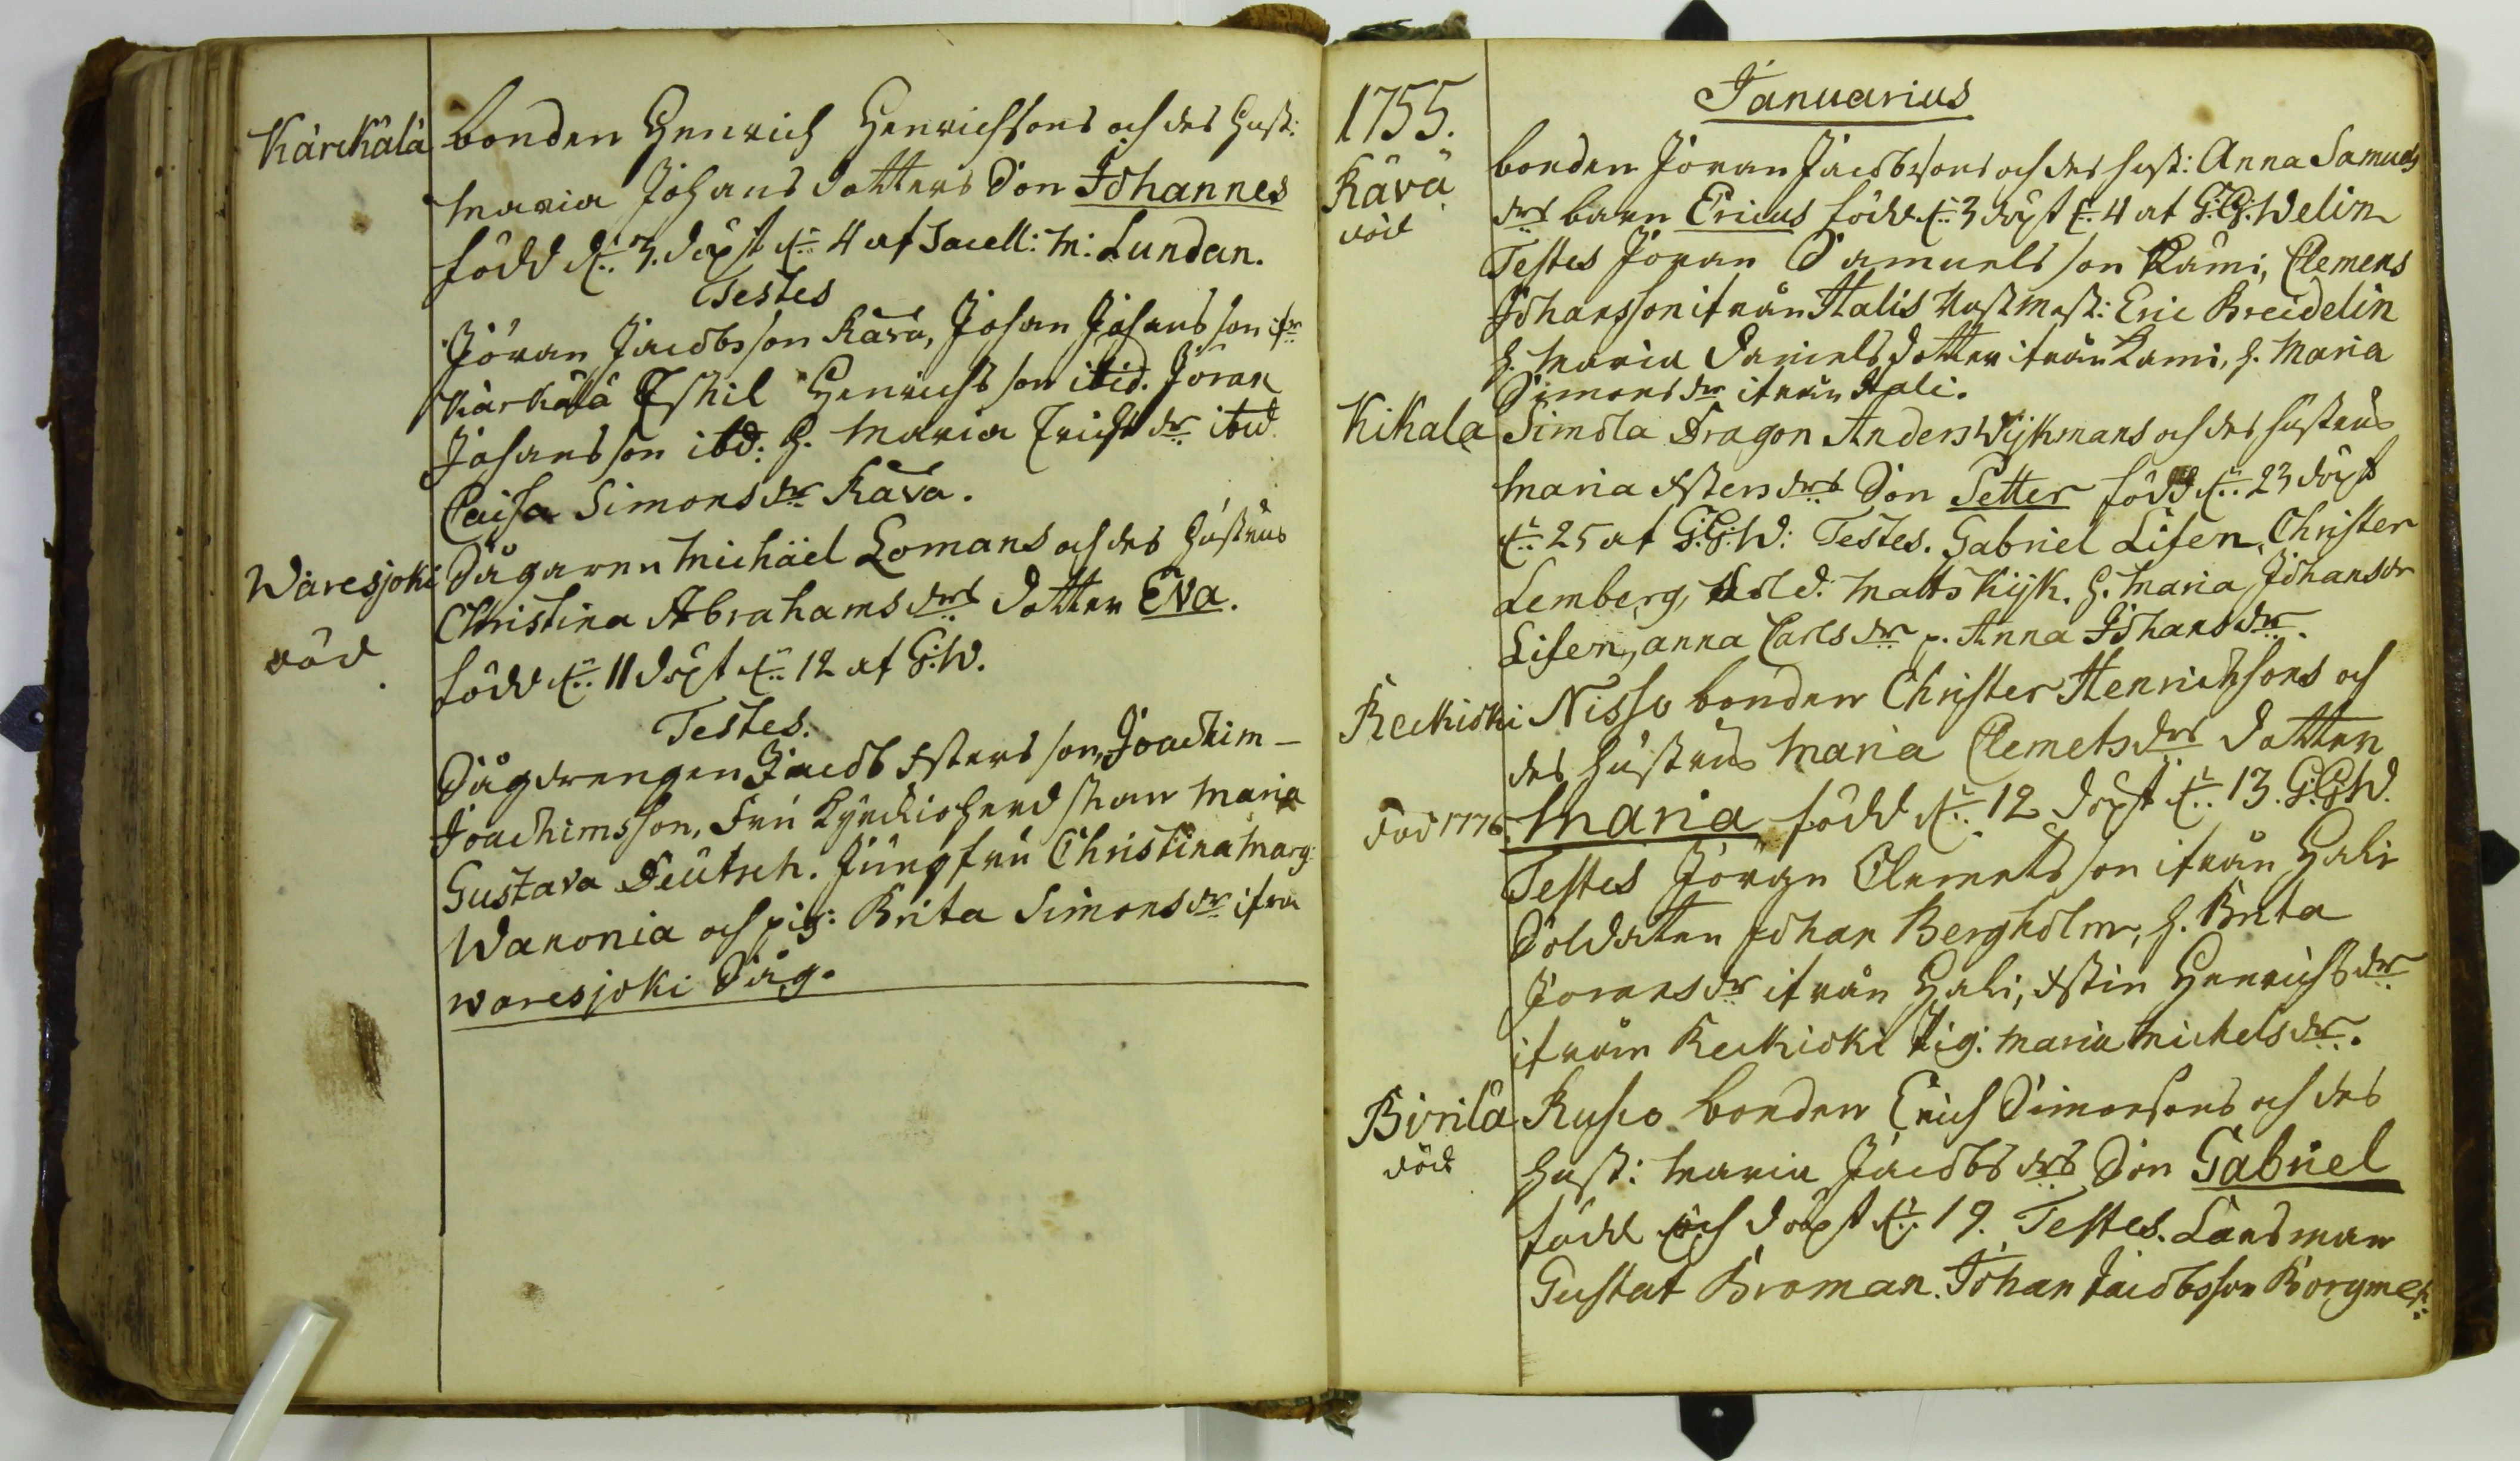 Kärckälä bonden Henrich Henrichsons och des Hust:
Maria Johans dotters Son Johannes
född d. 3. döpt d. 4 af Sacell: M: Lundan.
Testes
Jöran Jacobsson Kävä, Johan Johansson ifr
Kärkälä Eskil Henrichsson ibid. Jöran
Johansson ibd: h. Maria Erichs dr ibid.
Caisa Simonsdr Kävä.
Waresjoki Sågaren Michäel Lomans och des Hustrus
Christina Abrahams drs dotter Eva.
död
född d. 11 döpt d. 12 af G:W.
Testes.
Sågdrengen Jacob Estensson, Joachim
Joachimsson, Fru Kyrckioherdskan Maria
Gustava Deutsch. Jungfru Christina Marg:
Wanonia och pig: Brita Simonsdr ifrå
waresjoki Såg.
1755.
Januarius
Kävä
död
bonden Jöran Jacobssons och des hust: Anna Samuels
drs barn Ericus född d. 3 döpt d. 4 af G:G:Welin
Testes Jöran Samuelsson Rämi, Clemens
Johansson ifrån Halis Rustmest: Eric Breidelin
h. Maria Daniels dotter ifrån Rami, h. Maria
Simonsdr ifrån Hali.
Kikala Simola Dragon Anders Wijkmans och des hustrus
Maria Estensdrs Son Petter född d. 23 döpt
d. 25 af G:G:W: Testes. Gabriel Lisen, Christer
Lemberg, Sold: Matts Kijk. h. Maria Johansdr
Lisen, anna Carlsdr, p. Anna Johansdr.
Reckioki Nisso bonden Christer Henrichsons och
des hustrus Maria Clemetsdrs dotter
död 1776. Maria född d. 12 döpt d. 13. G:G:W.
Testes Jöran Clemetsson ifrån Hali
Soldaten Johan Bergholm, h. Brita
Joransdr ifrån Hali, Estin Henrichsdr
ifrån Reckioki Pig: Maria Michelsdr.
Kirilä Rusko bonden Erich Simonsons och des
död
Hust: Maria Jacobsdrs Son Gabriel
född och döpt d. 19. Testes. Landsman
Gustaf Broman. Johan Jacobsson Borgmest: